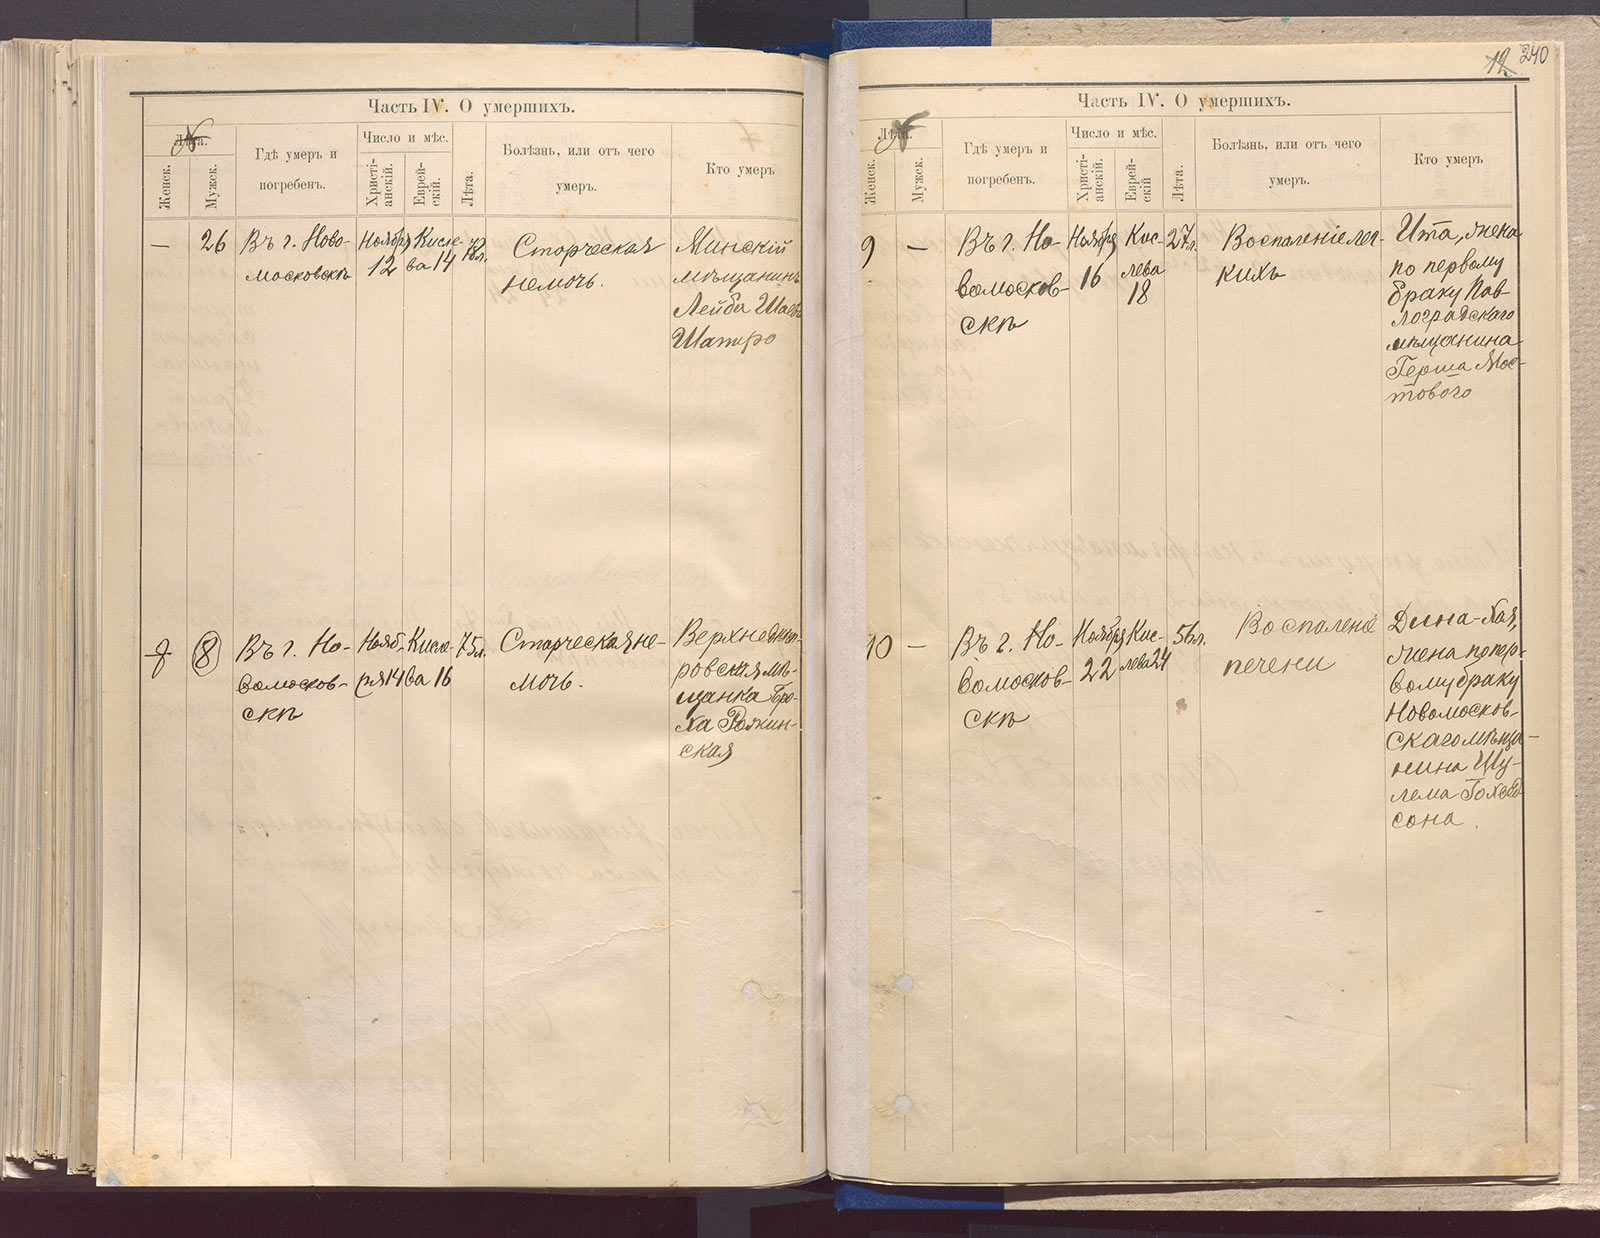 Часть IV. О умершихъ.
Лѣта.
№
Женск.
Мужск.
Гдѣ умеръ и
погребенъ.
Число и мѣс.
Христі-
анскій.
Еврей-
скій.
Лѣта.
Болѣзнь, или отъ чего
умеръ.
Кто умеръ
—
26
Въ г. Ново-
московскѣ
Ноября
12
Кисле-
ва 14
78л.
Старческая
немочь.
Минскій
мѣщанинъ
Лейба
Шапиро
7
8
Въ г. Но-
вомосков-
скѣ
Нояб-
ря 14
Кисле-
ва 16
75л.
Старческая не-
мочь.
Верхнеднѣп-
ровская мѣ-
щанка Бро-
ха
ская
12 240
Часть IV. О умершихъ.
Лѣта.
№
Женск.
Мужск.
Гдѣ умеръ и
погребенъ.
Число и мѣс.
Христі-
анскій.
Еврей-
скій
Лѣта.
Болѣзнь, или отъ чего
умеръ.
Кто умеръ
9
—
Въ г. Но-
вомосков-
скѣ
Ноября
16
Кис-
лева
18
27л.
Воспаленіе лег-
кихъ
Ита, жена
по первому
браку Пав-
лоградскаго
мѣщанина
Герша Мос-
тового
10
—
Въ г. Но-
вомосков-
скѣ
Ноября
22
Кис-
лева 24
56л.
Воспаленіе
печени
Дина-Хая,
жена по пер-
вому браку
Новомосков-
скаго мѣща-
нина Шу-
лема
сона.